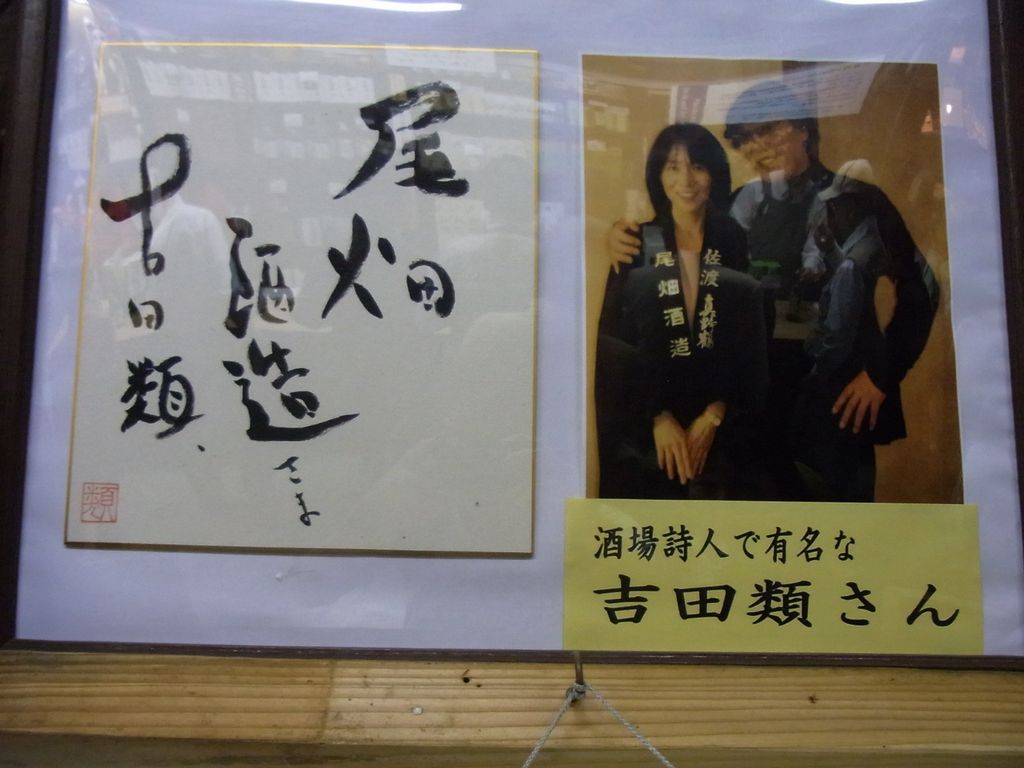 尾畑
酒造さま
吉田類、
類
佐渡 真野鶴
尾畑酒造
酒場詩人で有名な
吉田類さん